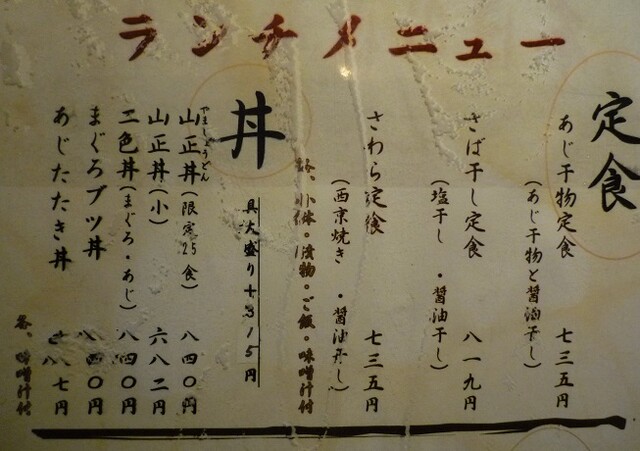 ランチメニュー
定食
あじ干物定食 七三五円
(あじ干物と醤油干し)
さば干し定食 八一九円
(塩干し・醤油干し)
さわら定食 七三五円
(西京焼き・醤油干し)
各、小鉢。漬物。ご飯。味噌汁付
丼
具大盛り+315円
やましょうどん
山正丼(限定25食) 八四〇円
山正丼(小) 六八二円
二色丼(まぐろ・あじ) 八四〇円
まぐろブツ丼 八四〇円
あじたたき丼 七円
各、味噌汁付